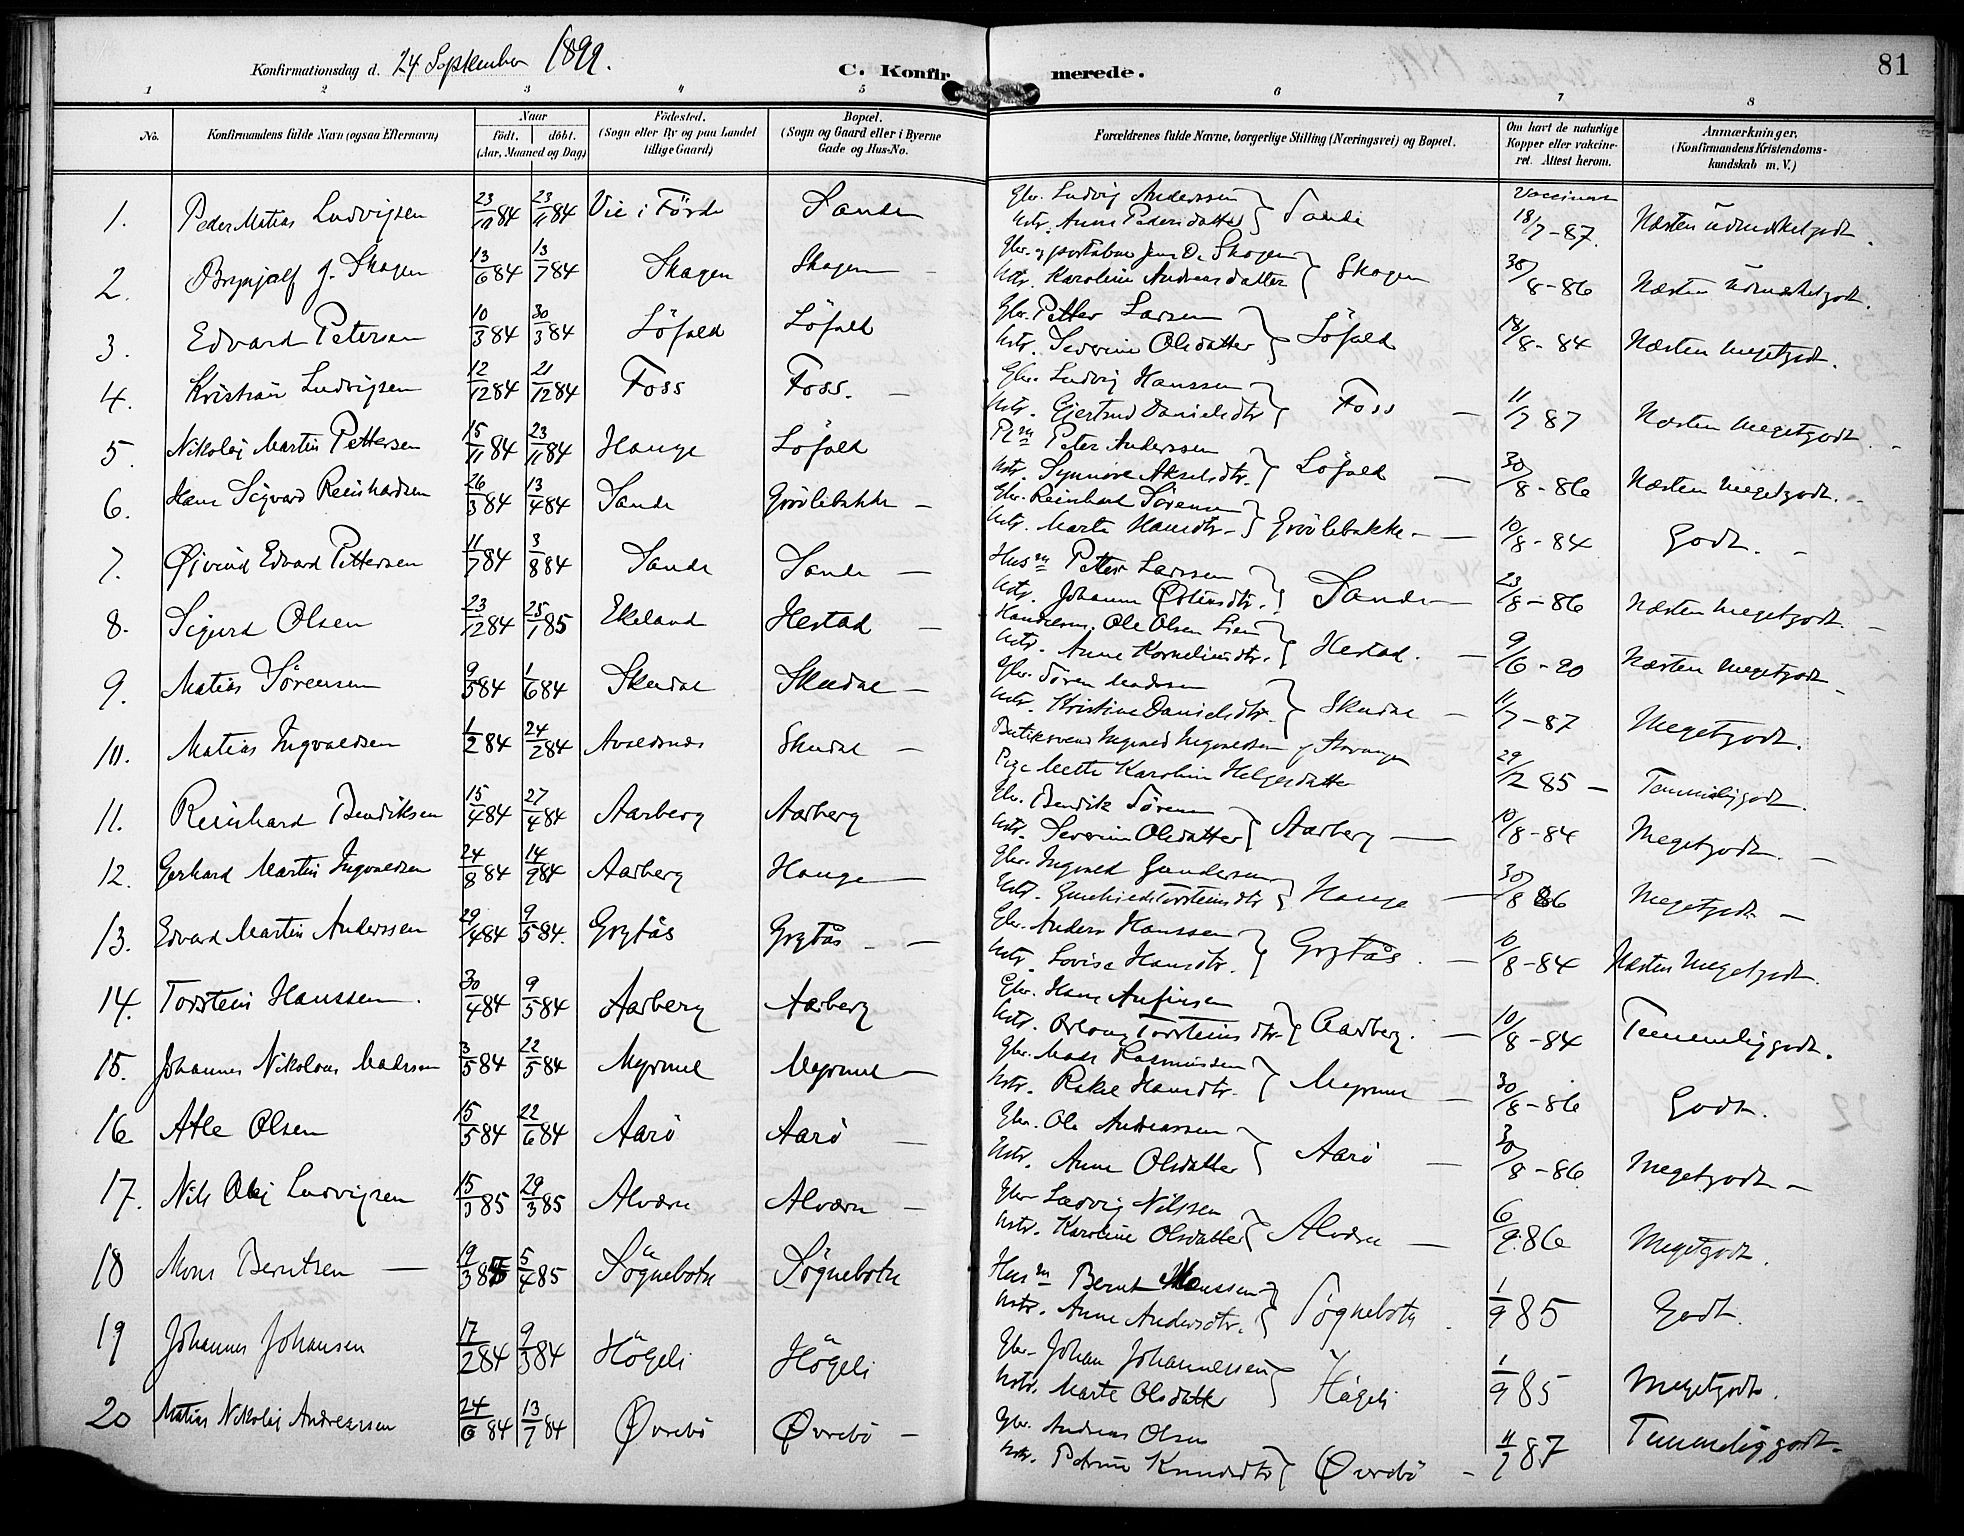 Konfirmationsdag d. 24 September 1899.
C. Konfirmerede.
81
1 2 3 4 5 6 7 8
No. Konfirmandens fulde Navn (ogsaa Efternavn) Naar født. døbt. (Aar, Maaned og Dag) Fødested. (Sogn eller By og paa Landet tillige Gaard) Bopæl. (Sogn og Gaard eller i Byerne Gade og Hus-No. Forældrenes fulde Navne, borgerlige Stilling (Næringsvei) og Bopæl. Om havt de naturlige Kopper eller vakcineret. Attest herom. Anmærkninger, (Konfirmandens Kristendomskundskab m. V.)
1. Peder Matias Ludvigsen 23/10 84 23/11 84 Vie i Förde Sande Gbr. Ludvig Anderssen Hstr. Anne Pedersdatter } Sande Vaccineret 18/7-87. Næsten udmærketgodt.
2. Brynjolf J. Skagen 13/6 84 13/7 84 Skagen Skagen Gbr. og Jens D. Skogen Hstr. Karoline Andreasdatter } Skogen 30/8-86 Næsten udmærketgodt.
3. Edvard Petersen 10/3 84 30/3 84 Löfald Löfald Gbr. Petter Larsen Hstr. Severine Olsdatter } Löfald 18/8-84 Næsten megetgodt.
4. Kristian Ludvigsen 12/12 84 21/12 84 Foss Foss. Gbr. Ludvig Hanssen Hstr. Gjertrud Danielsdtr } Foss 11/7 87 Næsten megetgodt.
5. Nikolai Martin Pettersen 15/11 84 23/11 84 Hauge Löfald Plm Peter Anderssen Hstr. Synnöve Akselsdtr. } Löfald 30/8-86 Næsten megetgodt.
6. Hans Sigvard Reinhardsen 26/3 84 13/4 84 Sande Grövlebakke Gbr. Reinhard Sörensen Hstr. Marta Hansdtr } Grövlebakke 10/8-84 Godt.
7. Øivind Edvard Pettersen 11/7 84 3/8 84 Sande Sande Husm Petter Larssen Hstr. Johanne Østensdtr. } Sande 23/8-86 Næsten megetgodt.
8. Sigurd Olsen 23/12 84 25/1 85 Ekeland Hestad Handlesm. Ole Olsen Lien Hstr. Anne Korneliusdtr. } Hestad. 9/6-90 Næsten megetgodt.
9. Matias Sörensen 9/5 84 1/6 84 Skudal Skudal Gbr. Sören Madssen Hstr. Kristine Danielsdtr. } Skudal 11/7-87 Megetgodt.
10. Matias Ingvaldsen 1/2 84 24/2 84 Avaldsnes Skudal Butiksvend Ingvald Ingvaldsen Pige Mette Karoline Helgesdatter 29/12 85 Temmeliggodt.
11. Reinhard Bendiksen 15/4 84 27/4 84 Aarberg Aarberg Gbr. Bendik Sörensen Hstr. Severine Olsdatter } Aarberg 10/8-84 Megetgodt.
12. Gerhard Martin Ingvaldsen 24/8 84 14/9 84 Aarberg Hauge Gbr. Ingvald Gundersen Hstr. Gunhild Torsteinsdtr } Hauge 30/8 86 Megetgodt
13. Edvard Martin Anderssen 29/4 84 9/5 84. Grytås Grytås Gbr. Anders Hanssen Hstr. Lovise Hansdtr. } Grytås. 10/8-84 Næsten megetgodt.
14. Torstein Hanssen. 30/4 84 9/5 84 Aarberg Aarberg Gbr. Hans Anfinsen Hstr. Torsteinsdtr. } Aarberg. 10/8-84 Temmeliggodt.
15. Johannes Nikolaus Madssen 3/5 84 22/5 84 Myrmel Myrmel Gbr. Mads Rasmussen Hstr. Rakel Hansdtr. } Myrmel 30/8-86 Godt.
16 Atle Olsen 15/5 84 22/6 84 Aarö Aarö Gbr. Ole Andreassen Hstr. Anne Olsdatter } Aarö 30/8-86 Megetgodt
17. Nils Olai Ludvigsen 15/3 85 29/3 85 Alværn Alværn Gbr Ludvig Nilssen Hstr. Karoline Olsdatter } Alværn 6/9 86 Megetgodt.
18 Mons Berntsen 19/3 85 5/4 85 Sögnebotn Sögnebotn Husm Bernt Monssen Hstr. Anne Andersdtr. } Sögnebotn 1/9 85 Godt.
19 Johannes Johansen 17/2 84 9/3 84 Högeli Högeli Gbr. Johan Johannessen Hstr. Marte Olsdatter } Högeli 1/9 85 Megetgodt.
20 Matias Nikolai Andreassen 24/6 84 13/7 84 Øvrebö Øvrebö Gbr. Andreas Olsen Hstr. Petrine Knudsdtr } Øvrebö 11/7 87 Temmeliggodt.